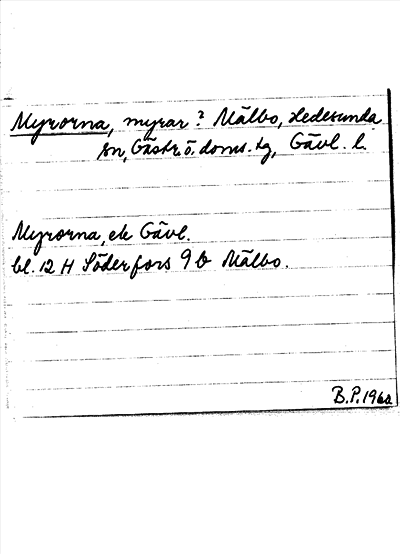 Myrorna, myrar? Mälbo, Hedesunda
sn, Gästr. ö. doms. tg, Gävl. l.
Myrorna, ek Gävl.
bl. 12 H Söderfors 9 b Mälbo.
B.P. 196